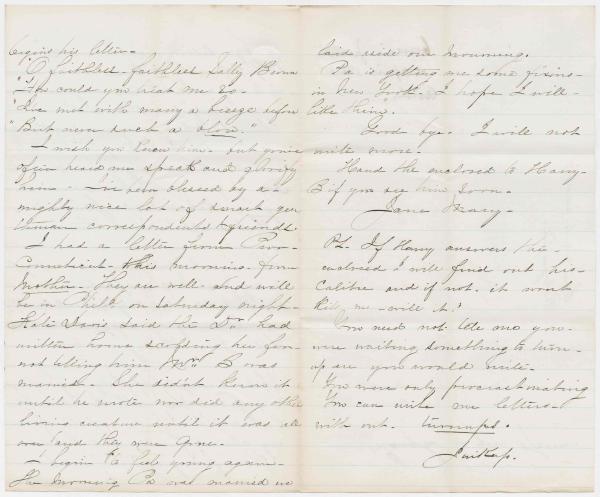 begins his letter-
"O faithless-faithless Sally Brown
"How could you treat me so-
"I've met with many a breeze before
"But never such a blow."
I wish you knew him- but you've
often heard me speak and glorify
him- I'm been blessed by a-
mighty nice lot of smart gen
tleman correspondents & friends
I had a letter from
Connecticut this morning from
Mother- They are well and will
be in Phila on Saturday night-
Kate Davis said the Dr had
written home scolding her for-
not telling him Mrs B was
married- She didn't know it
until he wrote nor did any other
living creature until it was all
over and they were gone-
I begin to feel young again-
The morning Pa was married we
laid aside our mourning.
Pa is getting me some fixins-
in New York. I hope I will-
like them.
Good bye. I will not
write more-
Hand the enclosed to Harry-
B if you see him soon-
Jane
PS. If Harry answers the-
enclosed I will find out his-
calibre and if not. it wont
kill me- will it?
You need not tell me you-
were waiting something to turn-
up ere you would write-
You were only procrastinating
You can write me letters-
with out- turnups.